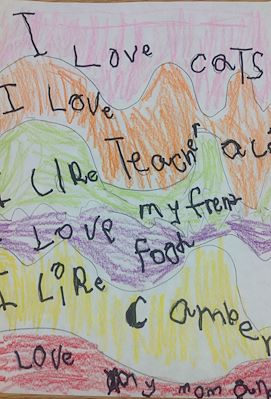 I Love caTS
I Love
Teacher
I LIRe my frens
I Love fogh
I LiRe Camber
Love my mom an